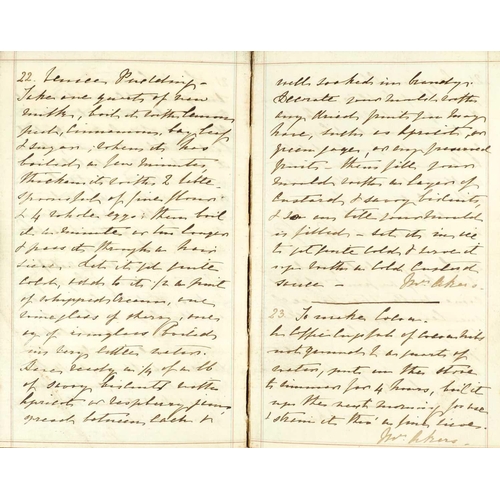 22. Venice Pudding -
Take one quart of new
milk, boil it with Lemon
peel, Cinnamon, bay leaf
& sugar; when it has
boiled a few minutes,
thicken it with 2 table
spoonsful of fine flour
& 4 whole eggs: then boil
it a minute or two longer
& pass it through a hair
sieve. Let it get quite
cold, add to it 1/2 a pint
of whipped cream, one
wineglass of sherry, one
oz of isinglass (boiled
in very little water.
Have ready a 1/4 of a lb
of savoy biscuits with
apricot or raspberry jam,
spread between each &
well soaked in brandy.
Decorate your mould with
any dried fruits you may
have, such as apricots, or
green gages, or any preserved
fruits - then fill your
mould with a layer of
Custard, & savoy biscuits,
& so on till your mould
is filled - set it in ice
to get quite cold & serve it
up with a cold Custard
sauce - Mrs Akers.
23. To make Cocoa.
A Coffee Cupful of Cocoa nibs
not ground to a quart of
water, put on the stove
to simmer for 4 hours, boil it
up the next morning for use
& strain it thro' a fine sieve.
Mrs Akers.